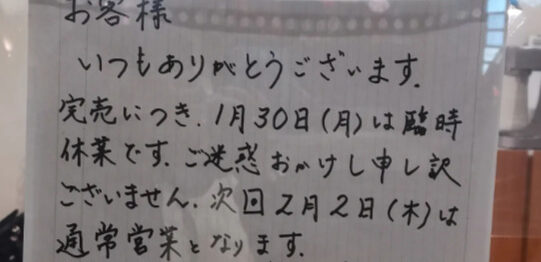 お客様
いつもありがとうございます.
完売につき.1月30日(月)は臨時
休業です.ご迷惑おかけし申し訳
ございません.次回2月2日(木)は
通常営業となります.